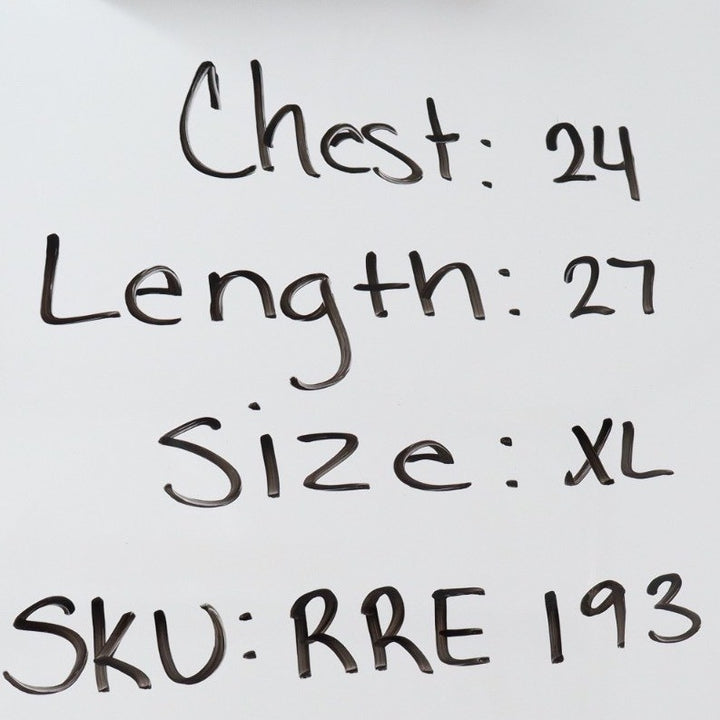 Chest: 24
Length: 27
Size: XL
SKU: RRE 193